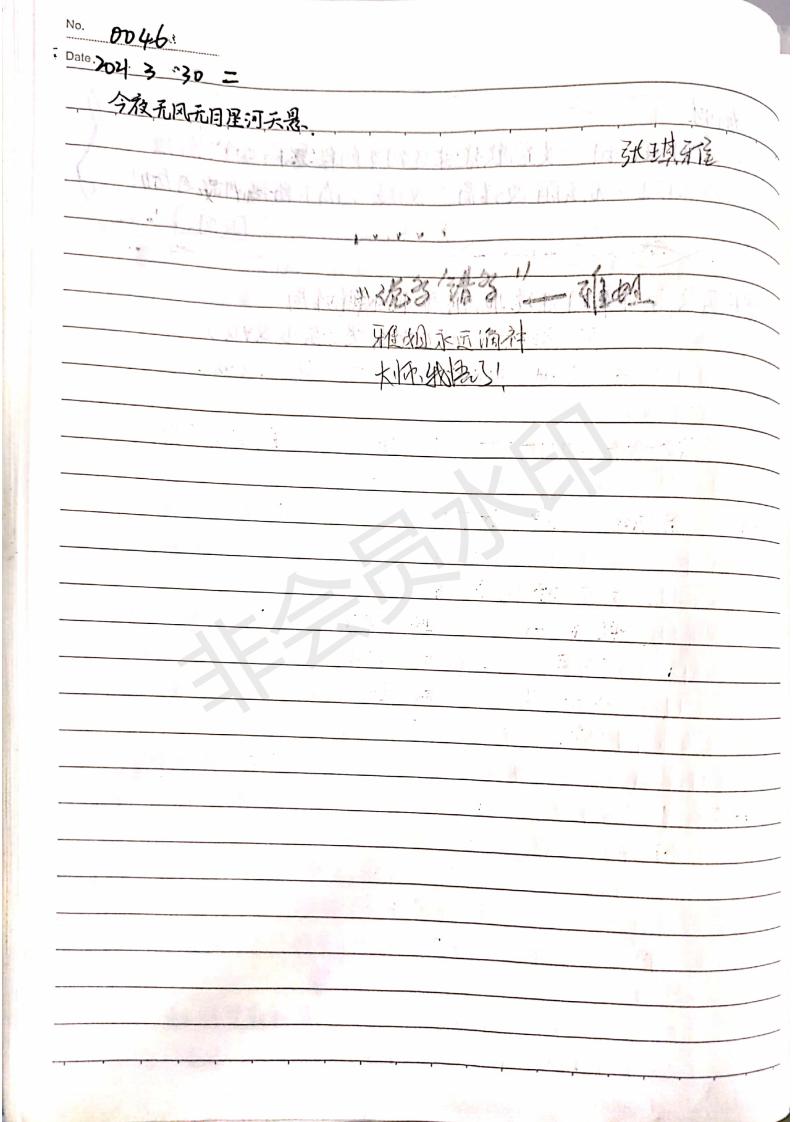 No. 0046
Date. 2021 3 30 二
今夜无风无月星河天悬.
张琪雅
“错多” —— 雅姐
雅姐永远滴神
大师,我悟了!
非会员水印